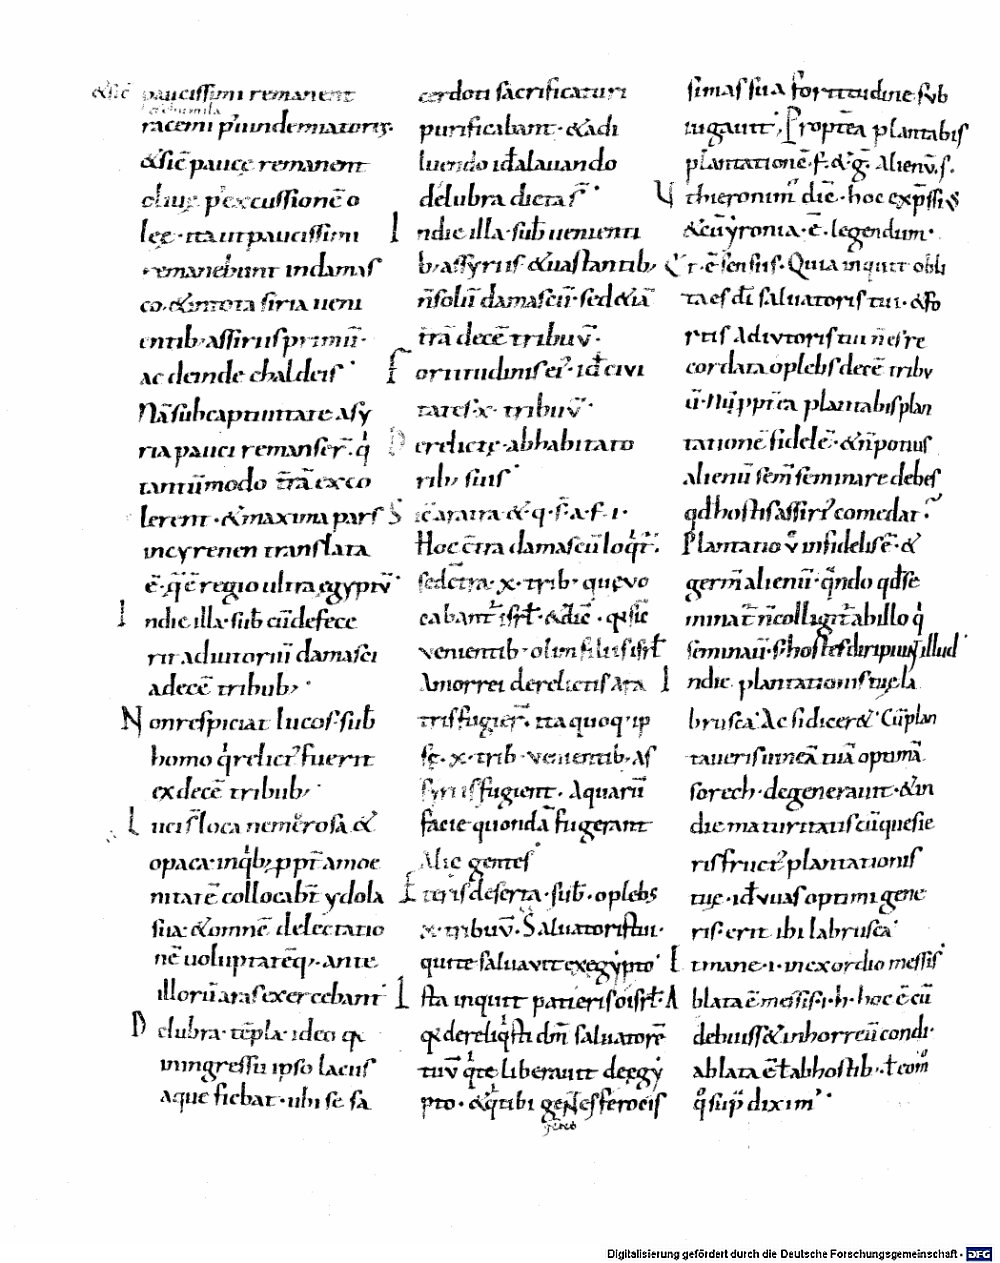 &sic̄ paucissimi remanent
racemi p'uindemiatoris.
&sic̄ paucę remanent
oliuę p'excussionē o
leę · ita ut paucissimi
remanebunt indamas
co · &intota siria ueni
entib; assiriis primū ·
ac deinde chaldeis ·
Nā sub captiuitate asy
ria pauci remanser̄ · q̇
tantūmodo tr̄ā exco
lerent · &maxima pars
incyrenen translata
ē · q̄ ē regio ultra ęgyptv̄ ·
Indie illa · sub̄ cū defece
rit adiutoriū damasci
adecē tribub; ·
Nonrespiciat lucos · sub̄
homo q̇ relict' fuerit
ex decē tribub; ·
Luci s̄ loca nemerosa &
opaca · inq̇b; ppt̄ amoe
nitatē collocabt̄ ydola
sua · &omnē delectatio
nē uoluptatēq; · ante
illorū aras exercebant
Delubra · tēpla · ideo qa
iningressu ipso lacus
aque fiebat · ubi se sa
cerdoti sacrificaturi
purificabant · &adi
luendo id̄ alauando
delubra dicta s̄ ·
Indie illa · sub̄ uenienti
b; assyriis &uastantib;
n̄ solū damascū · sed &iā
tr̄ā decē tribuv̄ ·
Fortitudinis ei' · id̄ civi
tates · x · tribuv̄ ·
Derelictę · abhabitato
rib; suis ·
Sic̄ aratra · & q · s̄ · a · f · i ·
Hoc c̄tra damascū loq̇t̄ ·
sed c̄tra · x · trib · quę vo
cabant̄ isrl̄ · &dic̄ · qa sic̄
venientib · olim filiis isrl̄
Amorrei derelictis ara
tris fugier̄ · ita quoq; ip
sę · x · trib · venientib · as
syriis fugient · Aquarū
facie quondā fugerant
Alię gentes
Et eris deserta · sub̄ · o plebs
x · tribuv̄ · Saluatoris tui ·
qui te saluauit exęgypto ·
Ista inquit patieris o isrl̄ ·
qa dereliq̇sti dm̄ saluatorē
tuv̄ q̇ te liberauit deęgy
pto · &q̇ tibi gentes feroces
simas sua fortitudine sub
iugauit · Propt̄ea plantabis
plantationē · f · &g̅ · alienv̄ · s ·
Vt hieronim' dic̄ · hoc exp̄ssiꝰ
&cū yronia · ē · legendum ·
Et · ē sensus · Quia inquit obli
ta es dī saluatoris tui · &fo
rtis adivtoris tui n̄ es re
cordata o plebs decē tribv
plantabis plan
tationē fidelē · &n̄ potius
alienū sem̄ seminare debes
qd̄ hostis assiri' comedat ·
Plantatio v̊ infidelis ē · &
germ̄ alienū · q̄ndo qd̄ se
minat̄ n̄ colligit̄ abillo q̇
seminauit · s; hostes diripiunt illud ·
Indie plantationis tuę la
brusca · Ac si dicer& · Cū plan
taueris uineā tuā optimā
sorech · degenerauit · &in
die maturitatis cū quesie
ris fruct' plantationis
tuę · id̄ vuas optimi gene
ris · erit ibi labrusca ·
Et mane · i · inexordio messis ·
Ablata ē messis · i · h · hoc ē cū
debuiss& inhorreū condi ·
ablata ē t̄ abhostib ·
q̊ sup̄ dixim' ·
Digitalisierung gefördert durch die Deutsche Forschungsgemeinschaft · DFG